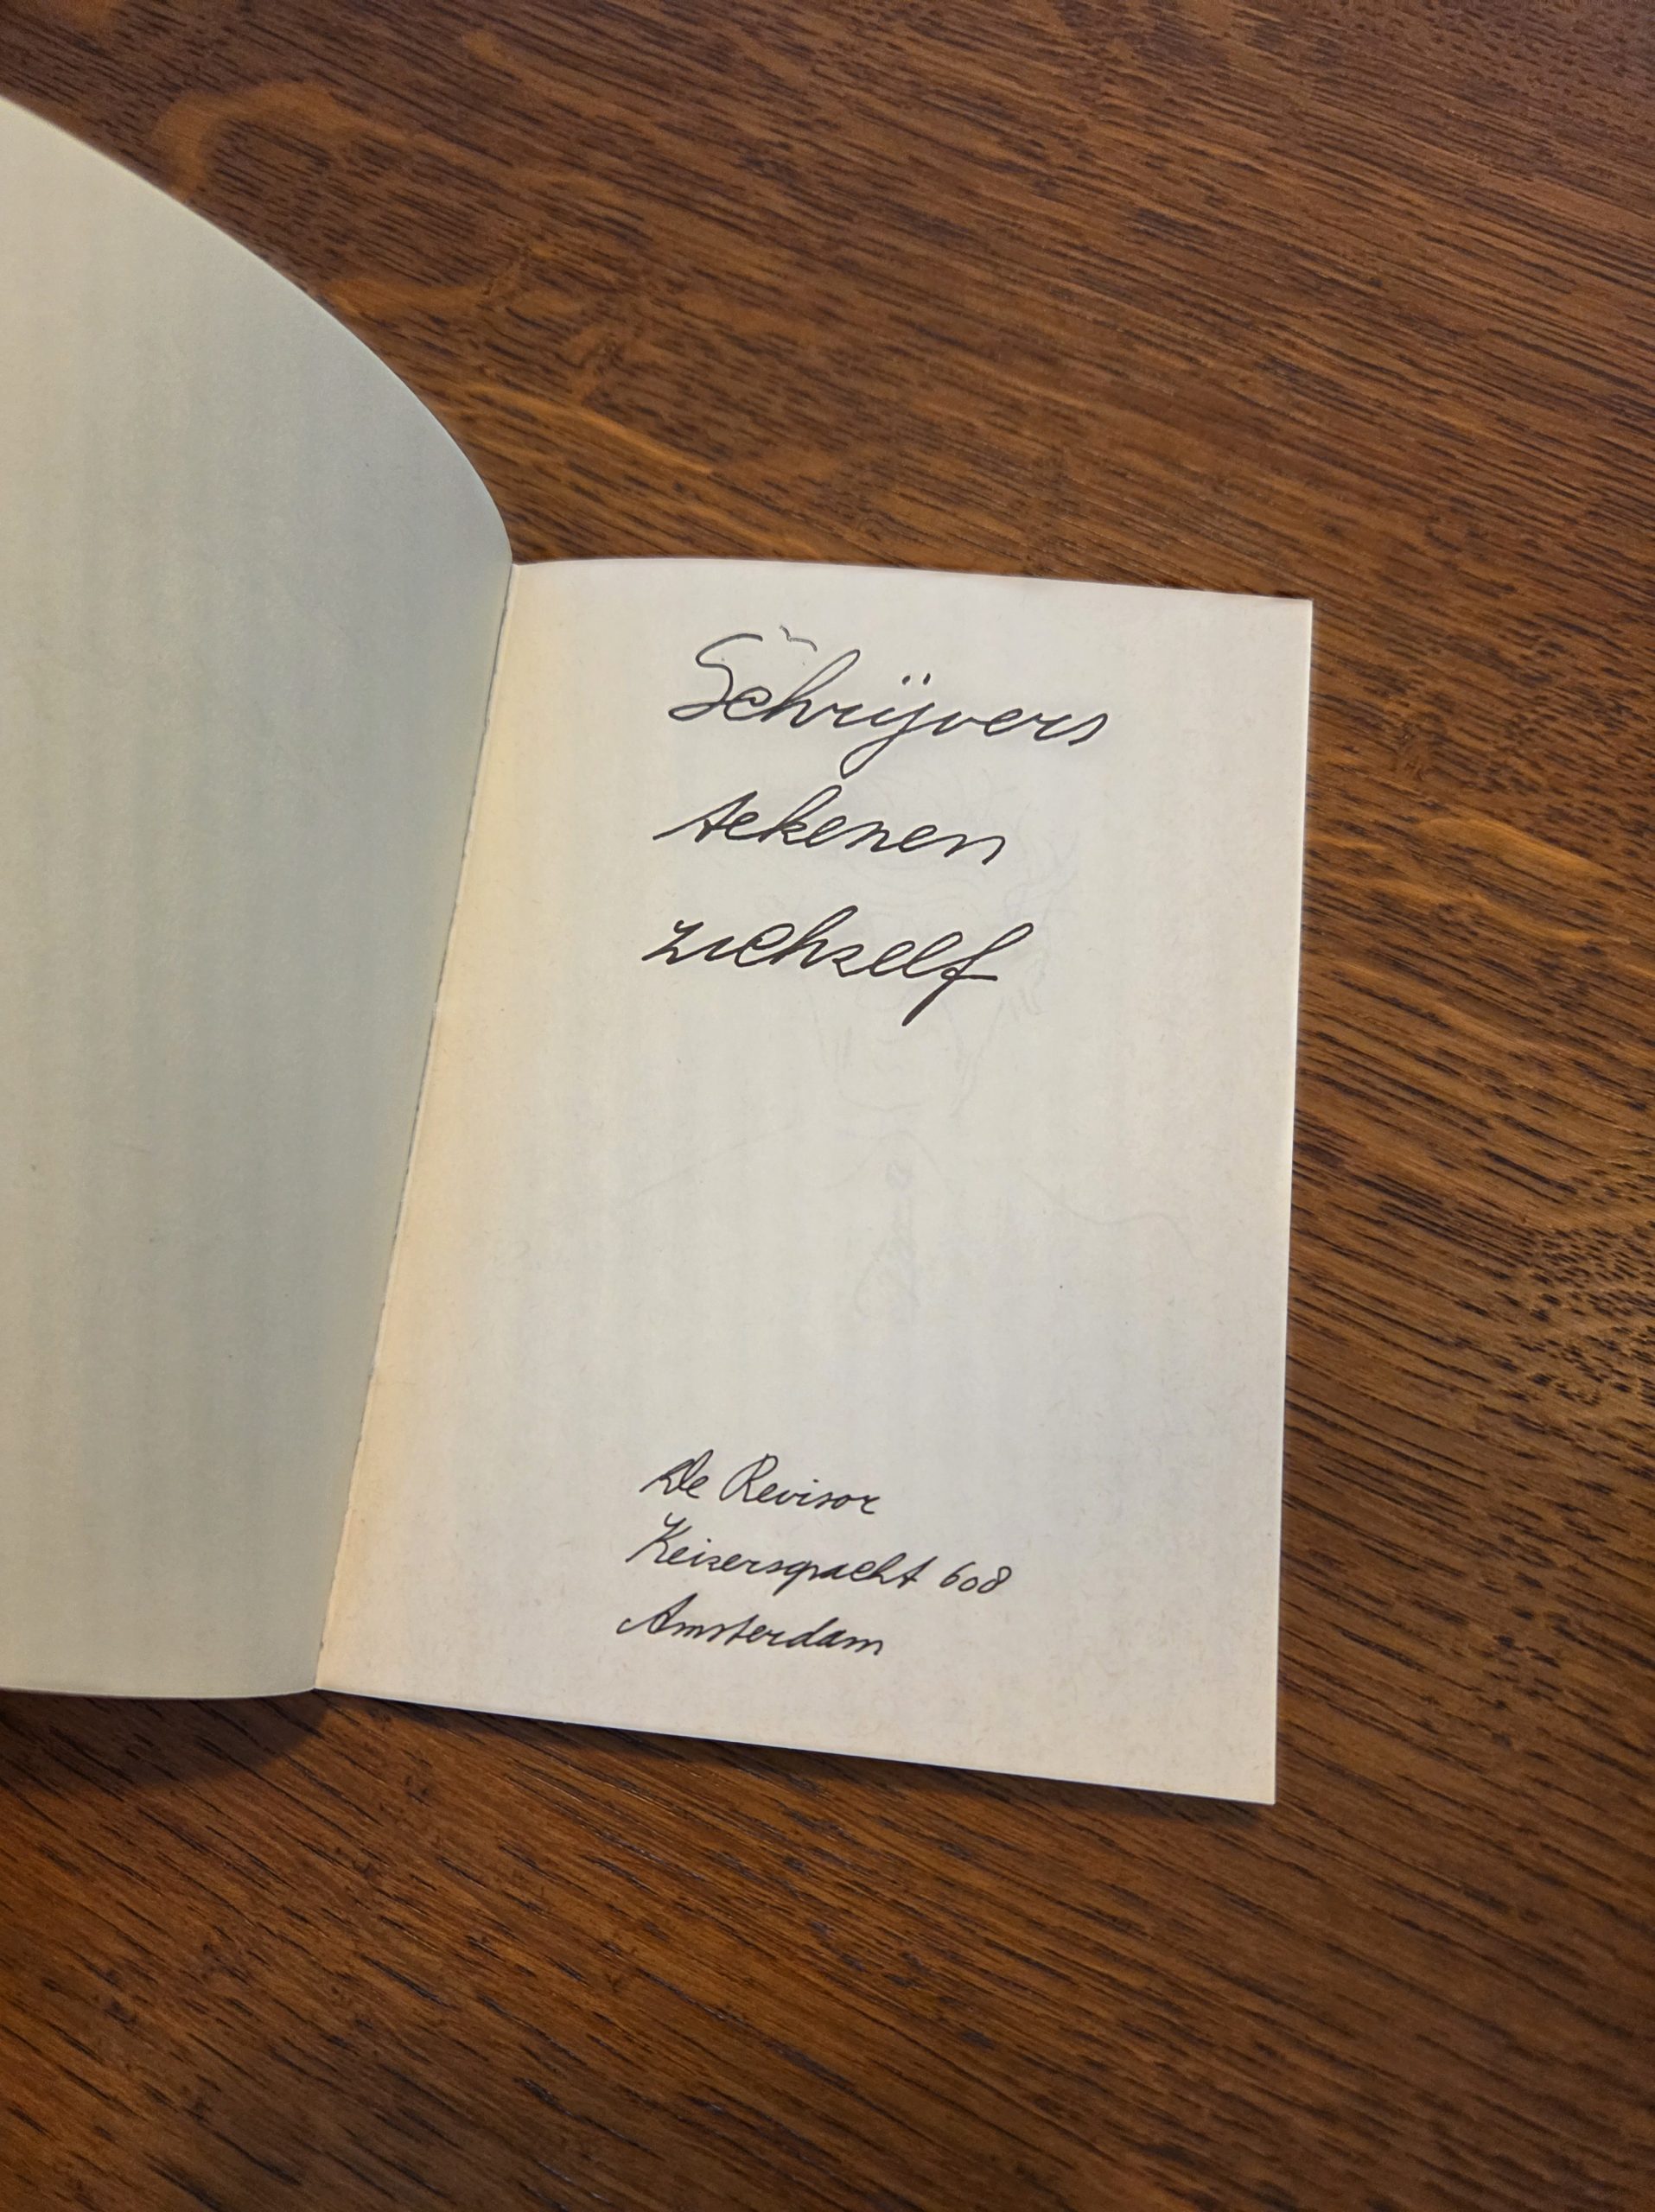 Schrijvers
tekenen
zichzelf
De Revisor
Keizersgracht 608
Amsterdam